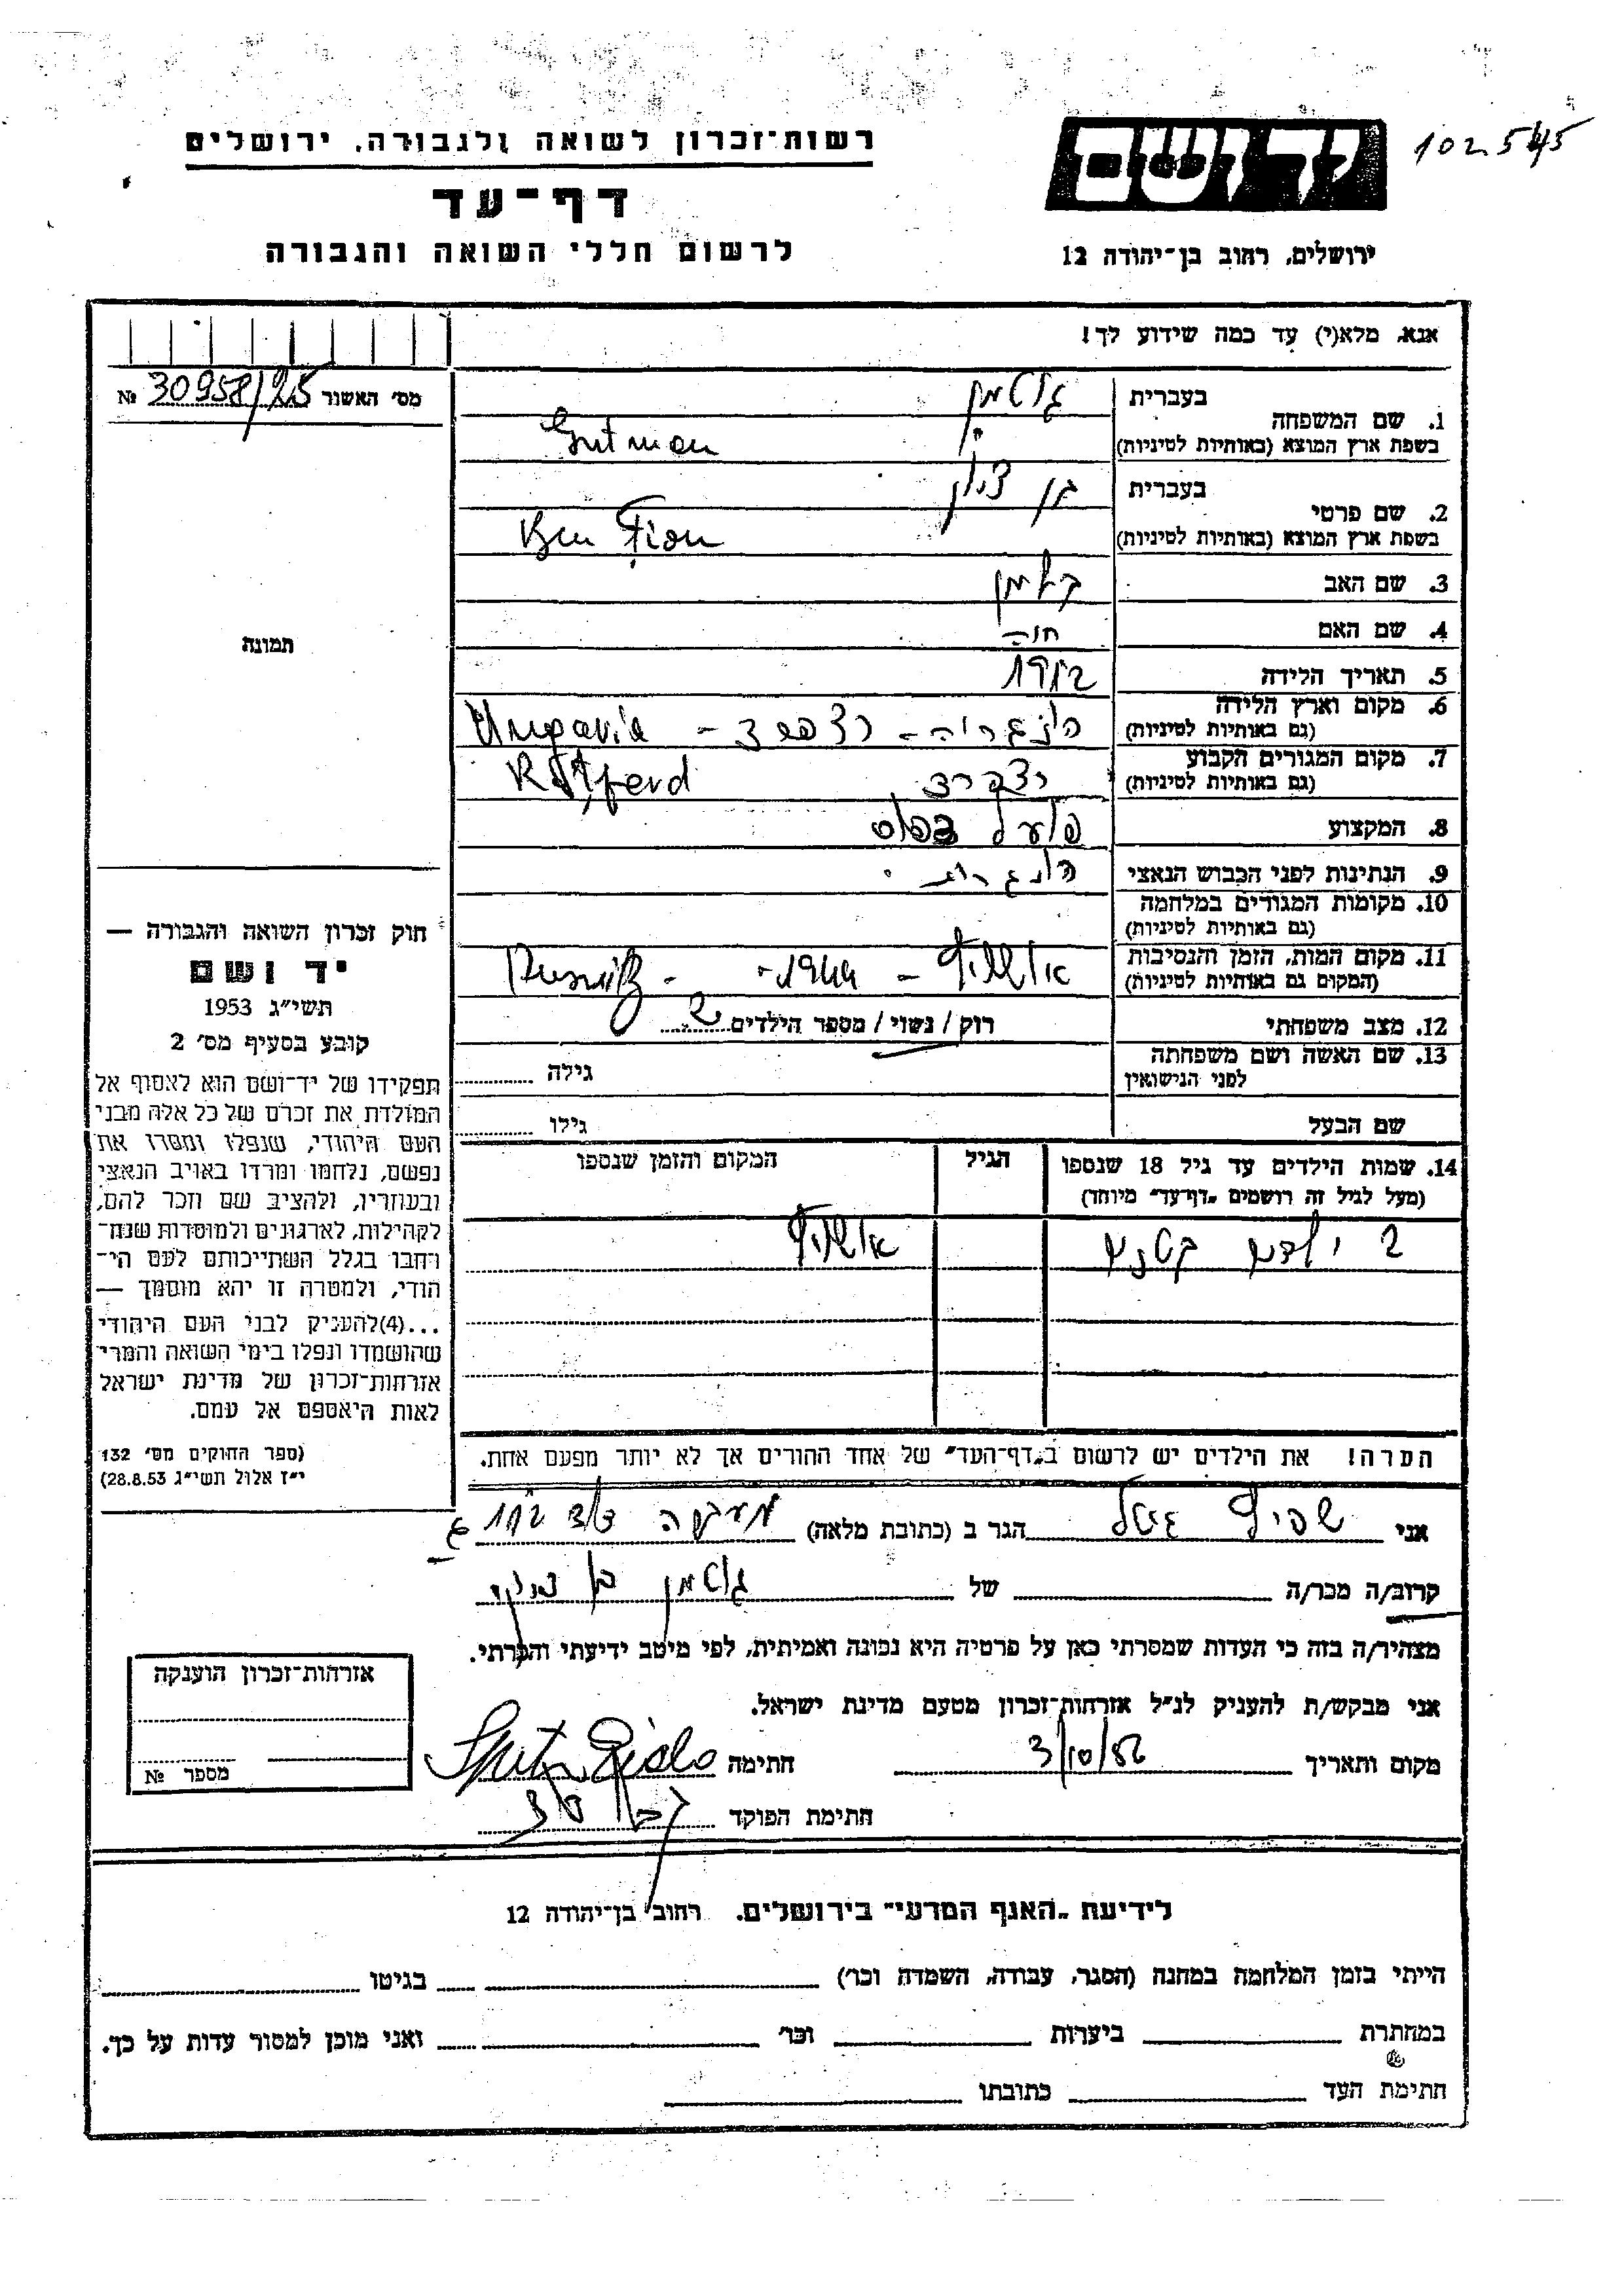 102545
רשות־זכרון לשואה ולגבורה, ירושלים
דף־עד
לרשום חללי השואה והגבורה
יד ושם
ירושלים, רחוב בן־יהודה 12
אנא, מלא(י) עד כמה שידוע לך!
מס׳ האשור 30958/25 №
1. שם המשפחה
בעברית גוטמן
בשפת ארץ המוצא (באותיות לטיניות) Gutman
2. שם פרטי
בעברית בן ציון
בשפת ארץ המוצא (באותיות לטיניות) Ben Tion
3. שם האב
4. שם האם חוה
5. תאריך הלידה 1912
6. מקום וארץ הלידה
(גם באותיות לטיניות) הונגריה -
7. מקום המגורים הקבוע
(גם באותיות לטיניות)
8. המקצוע פועל דפוס
9. הנתינות לפני הכבוש הנאצי הונגרית
10. מקומות המגורים במלחמה
(גם באותיות לטיניות)
11. מקום המות, הזמן והנסיבות
(המקום גם באותיות לטיניות) אושויץ - 1944 -
12. מצב משפחתי רוק / נשוי / מספר הילדים 2
13. שם האשה ושם משפחתה
לפני הנישואין גילה
שם הבעל גילו
14. שמות הילדים עד גיל 18 שנספו
(מעל לגיל זה רושמים „דף־עד״ מיוחד)
הגיל
המקום והזמן שנספו
2 ילדים קטנים אושויץ
הערה! את הילדים יש לרשום ב„דף־העד״ של אחד ההורים אך לא יותר מפעם אחת.
תמונה
חוק זכרון השואה והגבורה —
יד ושם
תשי״ג 1953
קובע בסעיף מס׳ 2
תפקידו של יד־ושם הוא לאסוף אל
המולדת את זכרם של כל אלה מבני
העם היהודי, שנפלו ומסרו את
נפשם, נלחמו ומרדו באויב הנאצי
ובעוזריו, ולהציב שם וזכר להם,
לקהילות, לארגונים ולמוסדות שנח־
רחבו בגלל השתייכותם לעם הי־
הודי, ולמטרה זו יהא מוסמך —
...(4)להעניק לבני העם היהודי
שהושמדו ונפלו בימי השואה והמרי
אזרחות־זכרון של מדינת ישראל
לאות היאספם אל עמם.
(ספר החוקים מס׳ 132
י״ז אלול תשי״ג 28.8.53)
אני שפיץ גיזל הגר ב (כתובת מלאה)
קרוב/ה מכר/ה של גוטמן בן
מצהיר/ה בזה כי העדות שמסרתי כאן על פרטיה היא נכונה ואמיתית, לפי מיטב ידיעתי והכרתי.
אני מבקש/ת להעניק לנ״ל אזרחות־זכרון מטעם מדינת ישראל.
מקום ותאריך 3/10/56 חתימה
חתימת הפוקד
אזרחות־זכרון הוענקה
מספר №
לידיעת „האגף המדעי״ בירושלים, רחוב בן־יהודה 12
הייתי בזמן המלחמה במחנה (הסגר, עבודה, השמדה וכו׳) בגיטו
במחתרת ביערות וכו׳ ואני מוכן למסור עדות על כך.
חתימת העד כתובתו